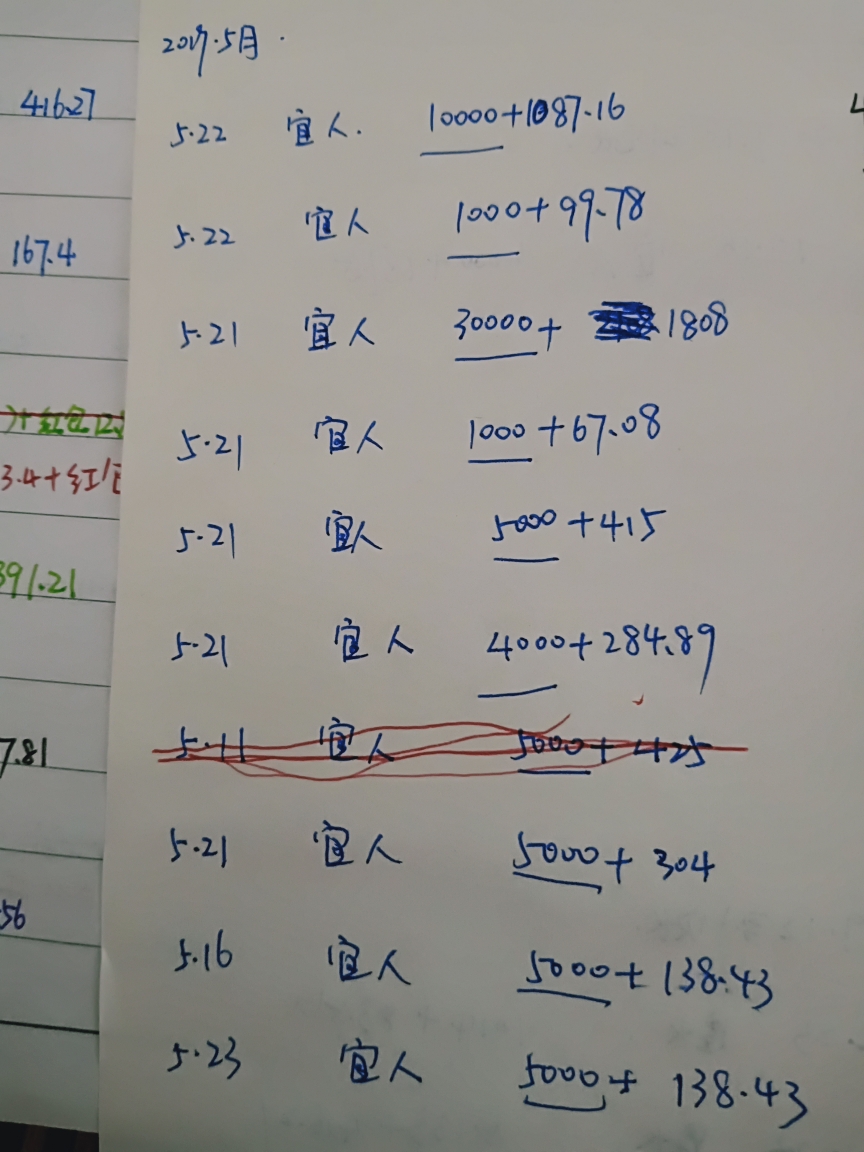 416.27
167.4
3.4+红
391.21
7.81
56
2017.5月.
5.22 宜人. 10000+1087.16
5.22 宜人 1000+99.78
5.21 宜人 30000+ 1808
5.21 宜人 1000+67.08
5.21 宜人 5000+415
5.21 宜人 4000+284.89
5.11 宜人 5000+425
5.21 宜人 5000+304
5.16 宜人 5000+138.43
5.23 宜人 5000+138.43